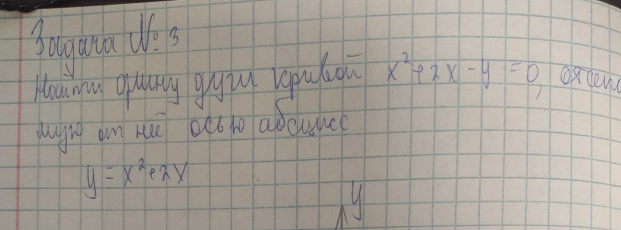 Задача № 3
Найти длину дуги кривой x²+2x-y=0, отсека
мую от неё осью абсцисс
y=x²+2x
y